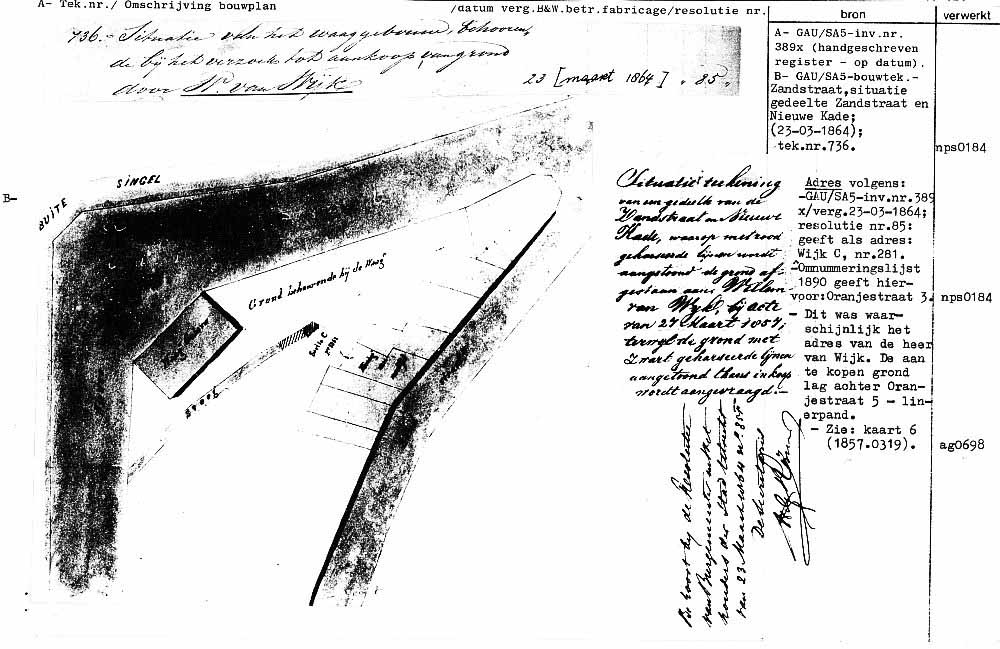 A- Tek.nr./ Omschrijving bouwplan
/datum verg.B&W.betr.fabricage/resolutie nr.
bron
verwerkt
736.- Situatie van het waaggebouw, behooren,
de bij het verzoek tot aankoop van grond
door W. van Wijk.
23 [maart 1864] . 85.
A- GAU/SA5-inv.nr.
389x (handgeschreven
register - op datum).
B- GAU/SA5-bouwtek.-
Zandstraat,situatie
gedeelte Zandstraat en
Nieuwe Kade;
(23-03-1864);
tek.nr.736.
nps0184
B-
BUITE SINGEL
Grond behoorende bij de Waag
Sectie C
Situatie teekening
van een gedeelte van de
Zandstraat en Nieuwe
Kade, waarop met rood
gearseerde lijnen wordt
aangetoond de grond af-
gestaan aan Willem
van Wijk, bij acte
van 27 Maart 1857;
terwijl de grond met
zwart gearseerde lijnen
aangetoond thans in koop
wordt aangevraagd.-
Adres volgens:
-GAU/SA5-inv.nr.389
x/verg.23-03-1864;
resolutie nr.85:
geeft als adres:
Wijk C, nr.281.
-Omnummeringslijst
1890 geeft hier-
voor:Oranjestraat 3.
nps0184
- Dit was waar-
schijnlijk het
adres van de heer
van Wijk. De aan
te kopen grond
lag achter Oran-
jestraat 5 - lin-
erpand.
- Zie: kaart 6
(1857.0319).
ag0698
Behoort bij de Resolutie
van Burgemeester en Wet
houders der Stad Utrecht
van 23 Maart 1864 No. 85
De Secretaris